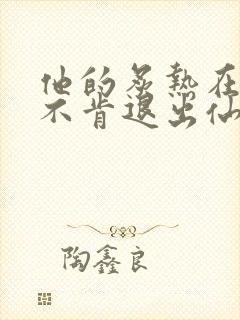 他的炙热在
不肯退出仙
陶鑫良